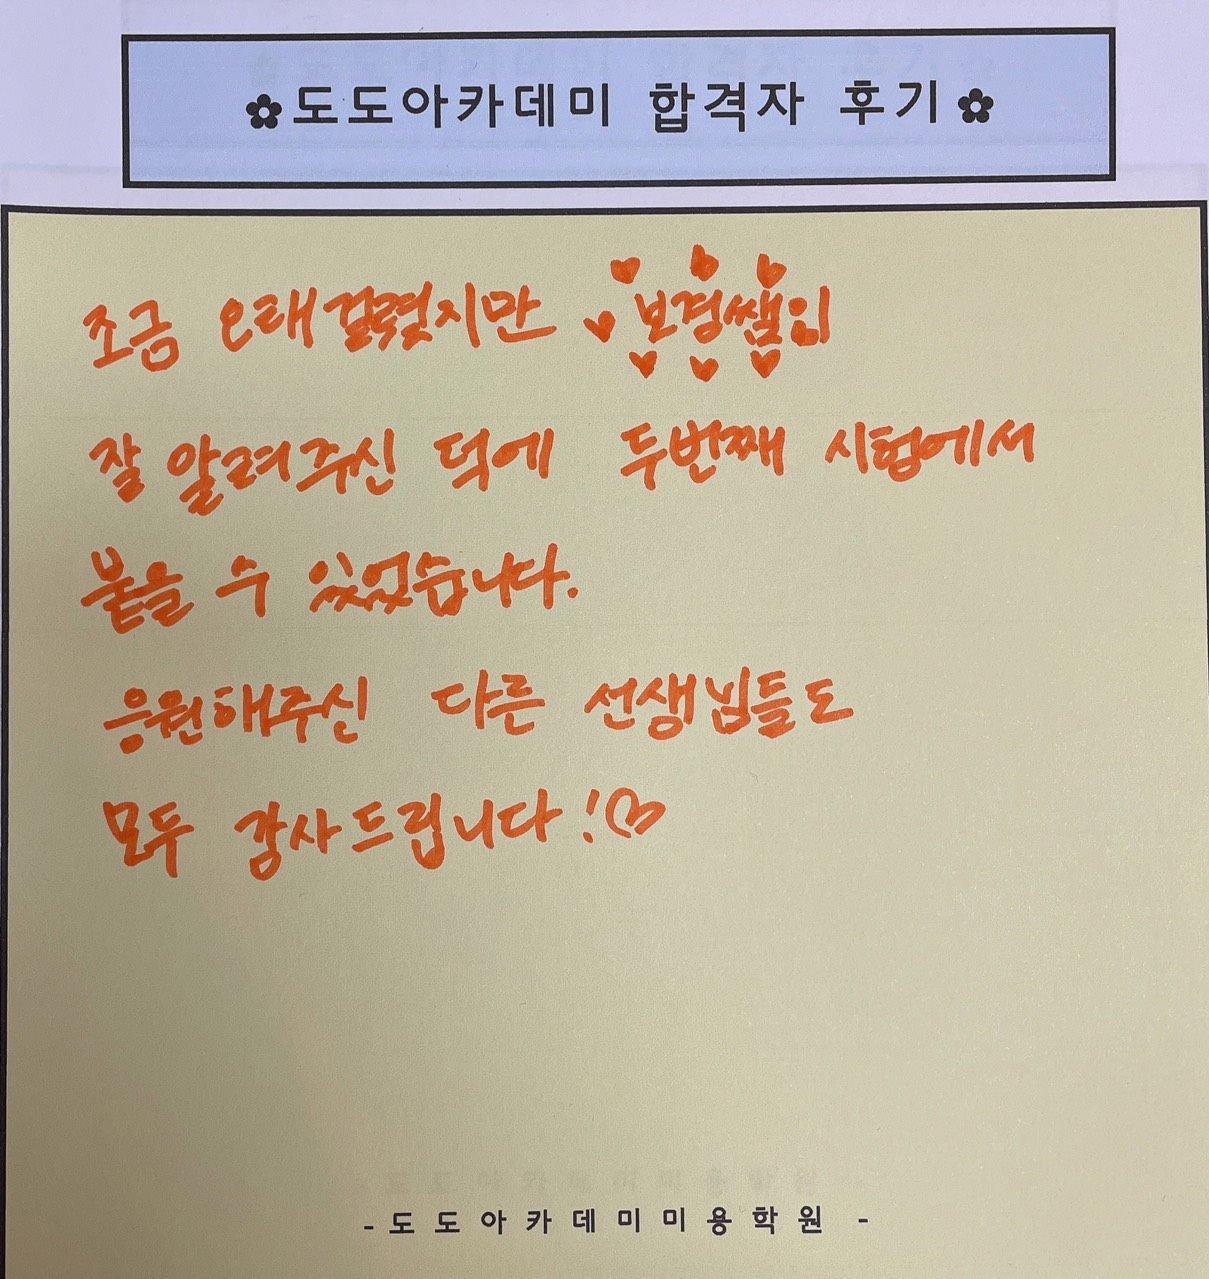 ✿도도아카데미 합격자 후기✿
조금 오래걸렸지만 보경쌤이
잘 알려주신 덕에 두번째 시험에서
붙을 수 있었습니다.
응원해주신 다른 선생님들도
모두 감사드립니다!♡
- 도도아카데미미용학원 -